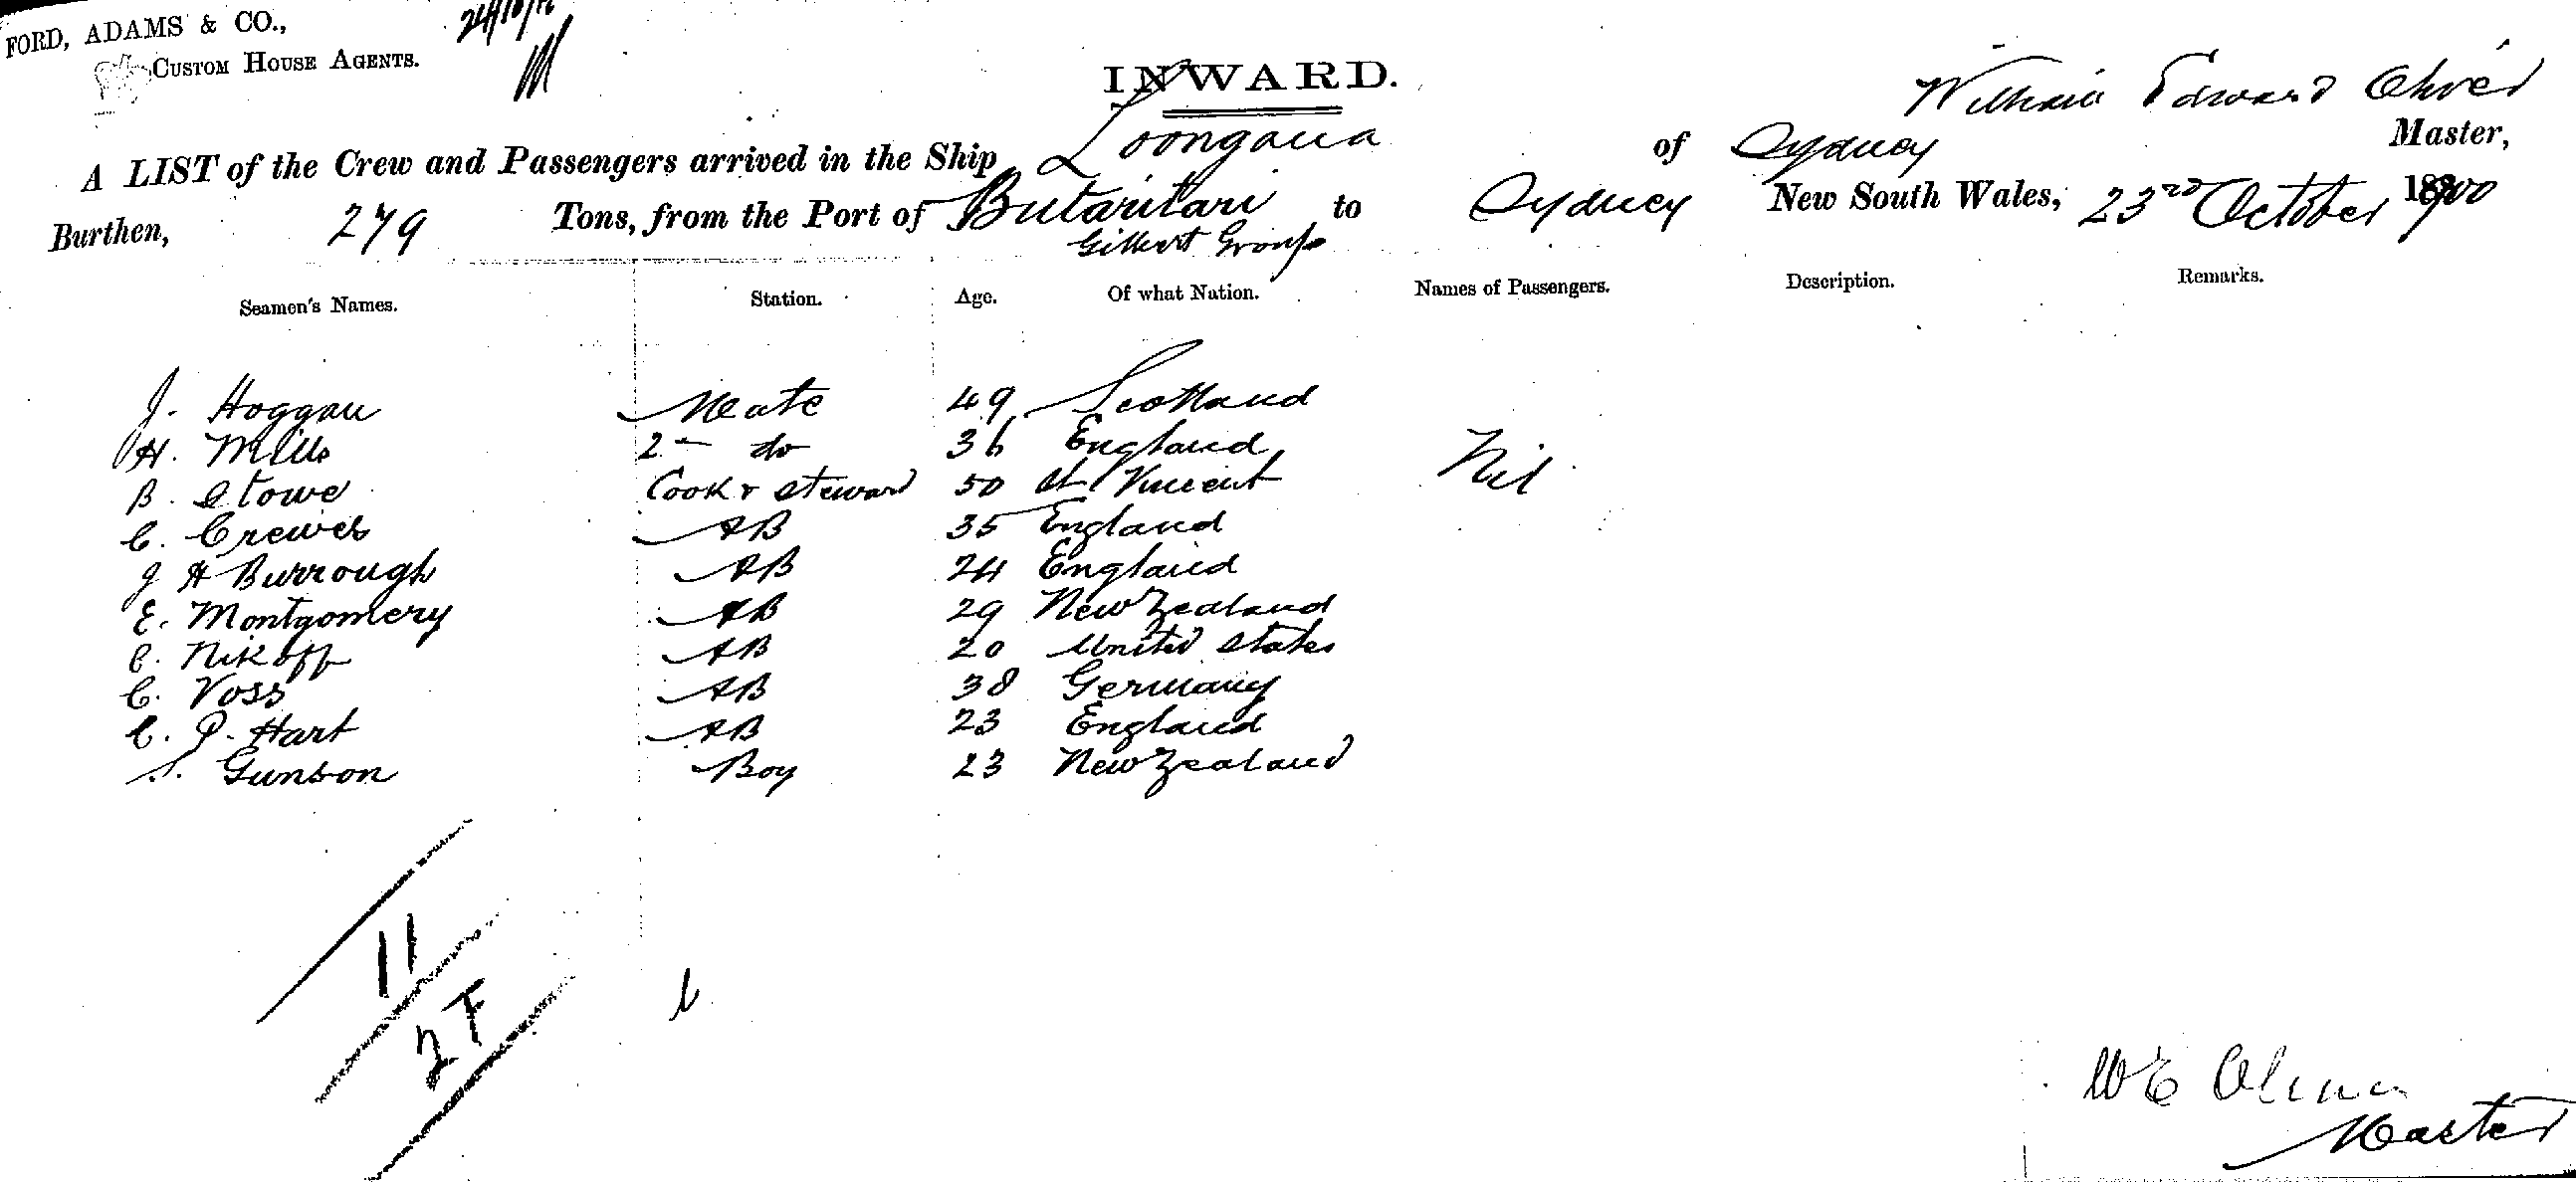 FORD, ADAMS & CO.,
CUSTOM HOUSE AGENTS.
INWARD.
William Edward Oliver
A LIST of the Crew and Passengers arrived in the Ship Loongana of Sydney Master,
Burthen, 279 Tons, from the Port of Butaritari to Sydney New South Wales, 23rd October 1900
Gilbert Group
Seamen's Names. Station. Age. Of what Nation. Names of Passengers. Description. Remarks.
J. Hoggan Mate 49 Scotland
H. Mills 2 do 36 England Nil
B. Stowe Cook & Steward 50 St Vincent
C. Crewes AB 35 England
J H Burrough AB 24 England
E. Montgomery AB 29 New Zealand
C. Nikoff AB 20 United States
C. Voss AB 38 Germany
C. P. Hart AB 23 England
S. Gunson Boy 23 New Zealand
11
2F
W E Oliver
Master